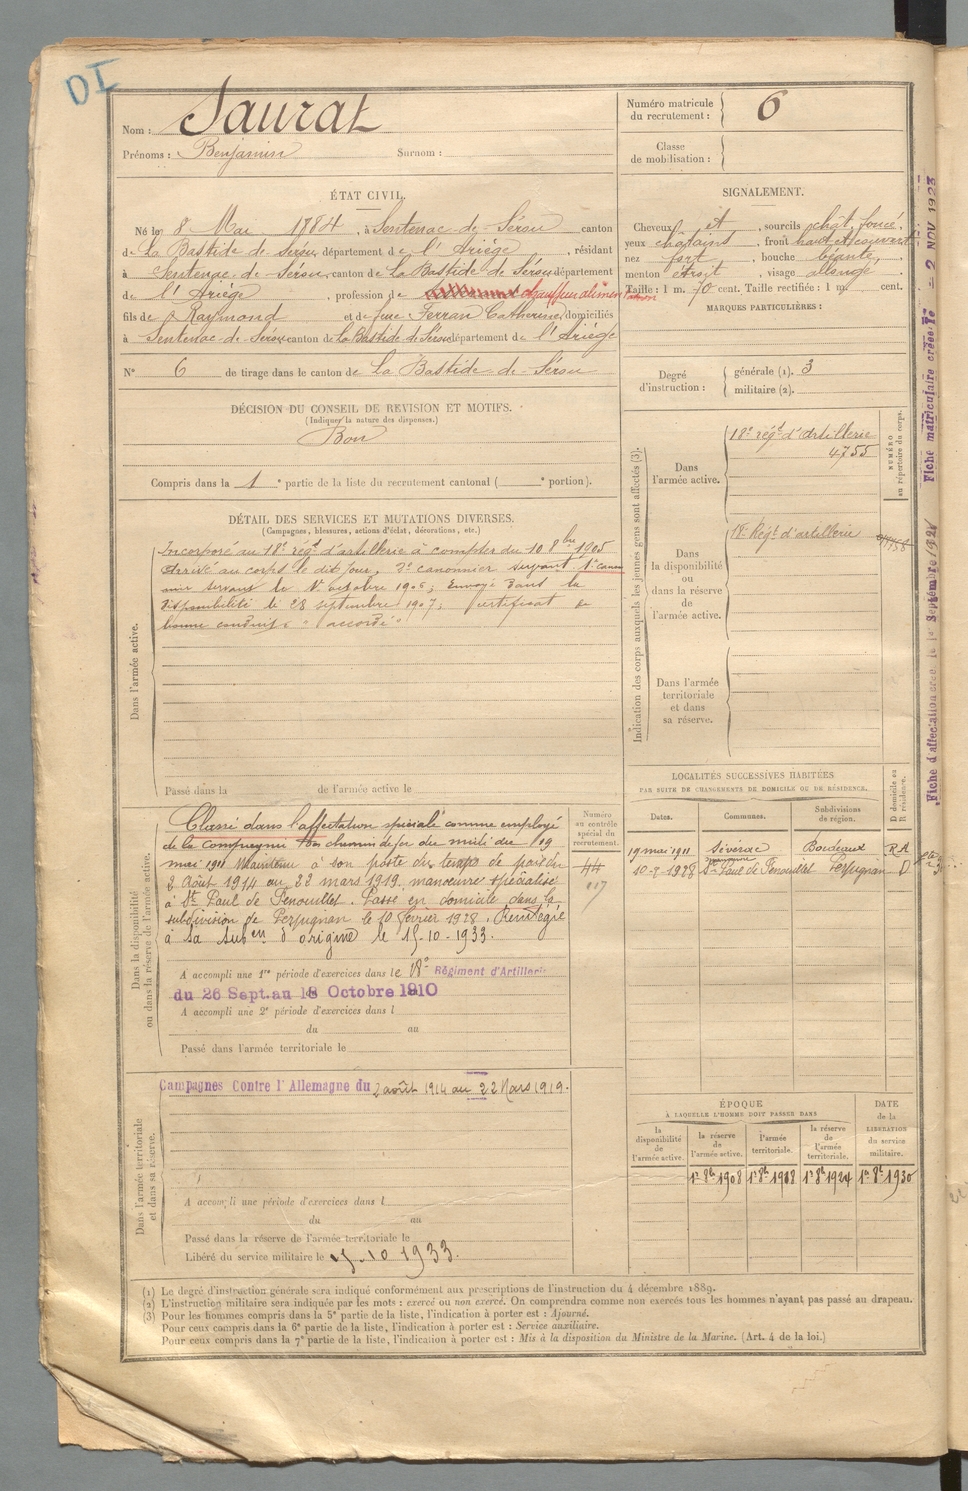 DI
Nom : Saurat
Prénoms : Benjamin Surnom :
Numéro matricule du recrutement : 6
Classe de mobilisation :
ÉTAT CIVIL.
Né le 8 Mai 1884, à Sentenac-de-Sérou canton
de La Bastide de Sérou, département de l'Ariège, résidant
à Sentenac-de-Sérou, canton de La Bastide de Sérou département
de l'Ariège, profession de chauffeur
fils de Raymond et de Ferran Catherine, domiciliés
à Sentenac-de-Sérou, canton de La Bastide de Sérou département de l'Ariège
N° 6 de tirage dans le canton de La Bastide-de-Sérou
SIGNALEMENT.
Cheveux et, sourcils chât. foncé,
yeux châtains, front haut et
nez fort, bouche béante,
menton étroit, visage allongé
Taille : 1 m. 70 cent. Taille rectifiée : 1 m. cent.
MARQUES PARTICULIÈRES :
Degré d'instruction : générale (1). 3
militaire (2).
DÉCISION DU CONSEIL DE REVISION ET MOTIFS.
(Indiquer la nature des dispenses.)
Bon
Compris dans la 1e partie de la liste du recrutement cantonal ( e portion).
DÉTAIL DES SERVICES ET MUTATIONS DIVERSES.
(Campagnes, blessures, actions d'éclat, décorations, etc.)
Dans l'armée active.
Incorporé au 18e régt d'artillerie à compter du 10 8bre 1905
Arrivé au corps le dit jour, 2e canonnier servant. 1e canon
nier servant le 1er octobre 1906; Envoyé dans la
disponibilité le 28 septembre 1907; certificat de
bonne conduite "accordé"
Passé dans la de l'armée active le
Indication des corps auxquels les jeunes gens sont affectés (3).
NUMÉRO au répertoire du corps.
Dans l'armée active.
18e régt d'artillerie
4755
Dans la disponibilité ou dans la réserve de l'armée active.
18e Régt d'artillerie
Dans l'armée territoriale et dans sa réserve.
Dans la disponibilité ou dans la réserve de l'armée active.
Classé dans l'affectation spéciale comme employé
de la compagnie des chemins de fer du midi du 19
mai 1911 Maintenu à son poste du temps de paix du
2 Août 1914 au 22 mars 1919. manœuvre spécialisé
à St Paul de Fenouillet. Passé en domicile dans la
subdivision de Perpignan le 10 février 1928. Réintégré
à sa subon d'origine le 15-10-1933.
Numéro au contrôle spécial du recrutement.
44
117
A accompli une 1re période d'exercices dans le 18e Régiment d'Artillerie
du 26 Sept. au 18 Octobre 1910
A accompli une 2e période d'exercices dans l
du au
Passé dans l'armée territoriale le
LOCALITÉS SUCCESSIVES HABITÉES
PAR SUITE DE CHANGEMENTS DE DOMICILE OU DE RÉSIDENCE.
Dates. Communes. Subdivisions de région. D domicile ou R résidence.
19 mai 1911 Séverac Bordeaux R A
10-2-1928 St Paul de Fenouillet Perpignan D
Dans l'armée territoriale et dans sa réserve.
Campagnes Contre l'Allemagne du 2 août 1914 au 22 Mars 1919.
A accompli une période d'exercices dans l
du au
Passé dans la réserve de l'armée territoriale le
Libéré du service militaire le 15.10 1933.
ÉPOQUE
À LAQUELLE L'HOMME DOIT PASSER DANS
la disponibilité de l'armée active. la réserve de l'armée active. l'armée territoriale. la réserve de l'armée territoriale.
DATE de la LIBÉRATION du service militaire.
1r 8bre 1908 1r 8bre 1918 1r 8bre 1924 1r 8bre 1930
(1) Le degré d'instruction générale sera indiqué conformément aux prescriptions de l'instruction du 4 décembre 1889.
(2) L'instruction militaire sera indiquée par les mots : exercé ou non exercé. On comprendra comme non exercés tous les hommes n'ayant pas passé au drapeau.
(3) Pour les hommes compris dans la 5e partie de la liste, l'indication à porter est : Ajourné.
Pour ceux compris dans la 6e partie de la liste, l'indication à porter est : Service auxiliaire.
Pour ceux compris dans la 7e partie de la liste, l'indication à porter est : Mis à la disposition du Ministre de la Marine. (Art. 4 de la loi.)
Fiche d'affectation créée le 1er Septembre 1921
Fiche matriculaire créée le 2 NOV 1923